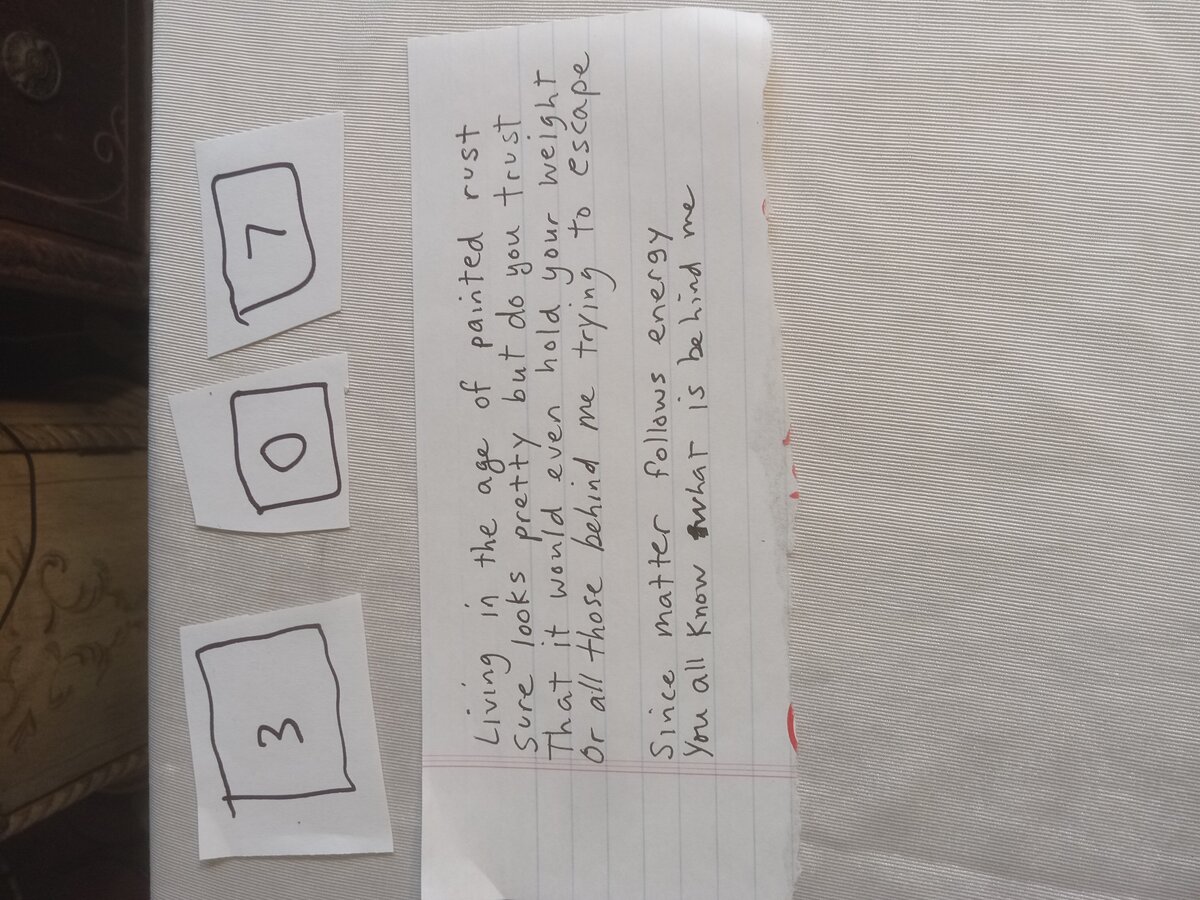 3 0 7
Living in the age of painted rust
Sure looks pretty but do you trust
That it would even hold your weight
Or all those behind me trying to escape
Since matter follows energy
You all know what is behind me